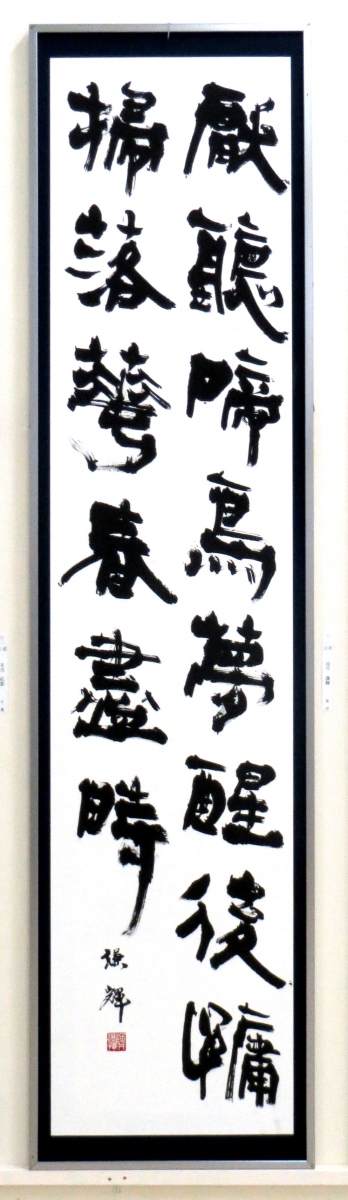 厭聽啼鳥夢醒後慵
掃落華春盡時
謙輝